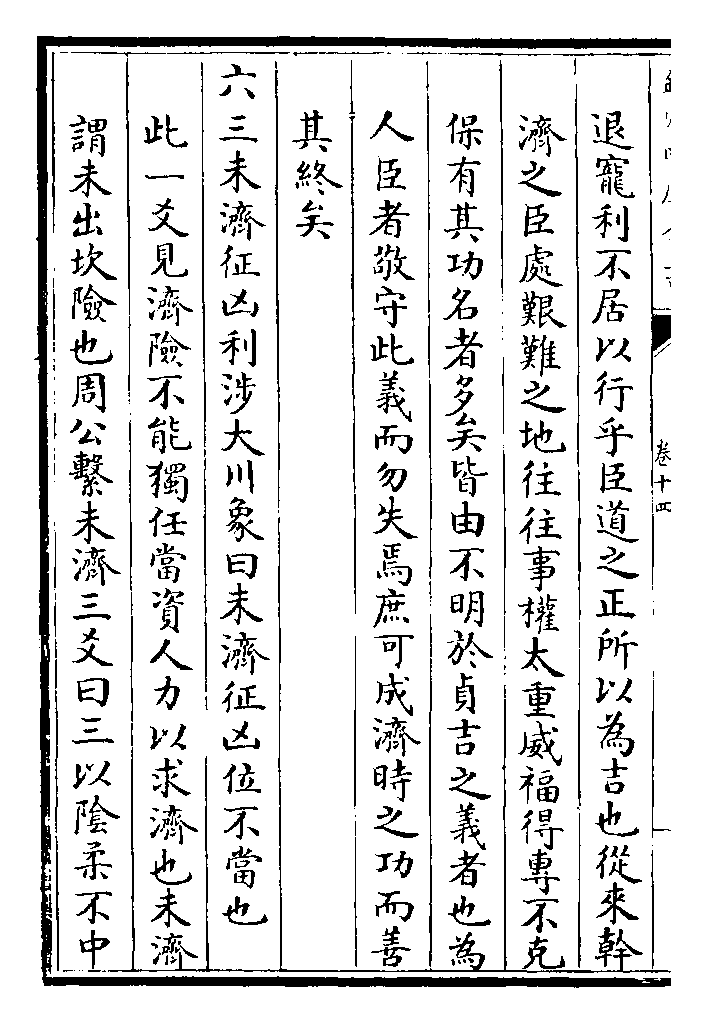 卷十四
退寵利不居以行乎臣道之正所以為吉也從來幹
濟之臣處艱難之地往往事權太重威福得專不克
保有其功名者多矣皆由不明於貞吉之義者也為
人臣者敬守此義而勿失焉庶可成濟時之功而善
其終矣
六三未濟征凶利涉大川象曰未濟征凶位不當也
此一爻見濟險不能獨任當資人力以求濟也未濟
謂未出坎險也周公繫未濟三爻曰三以陰柔不中